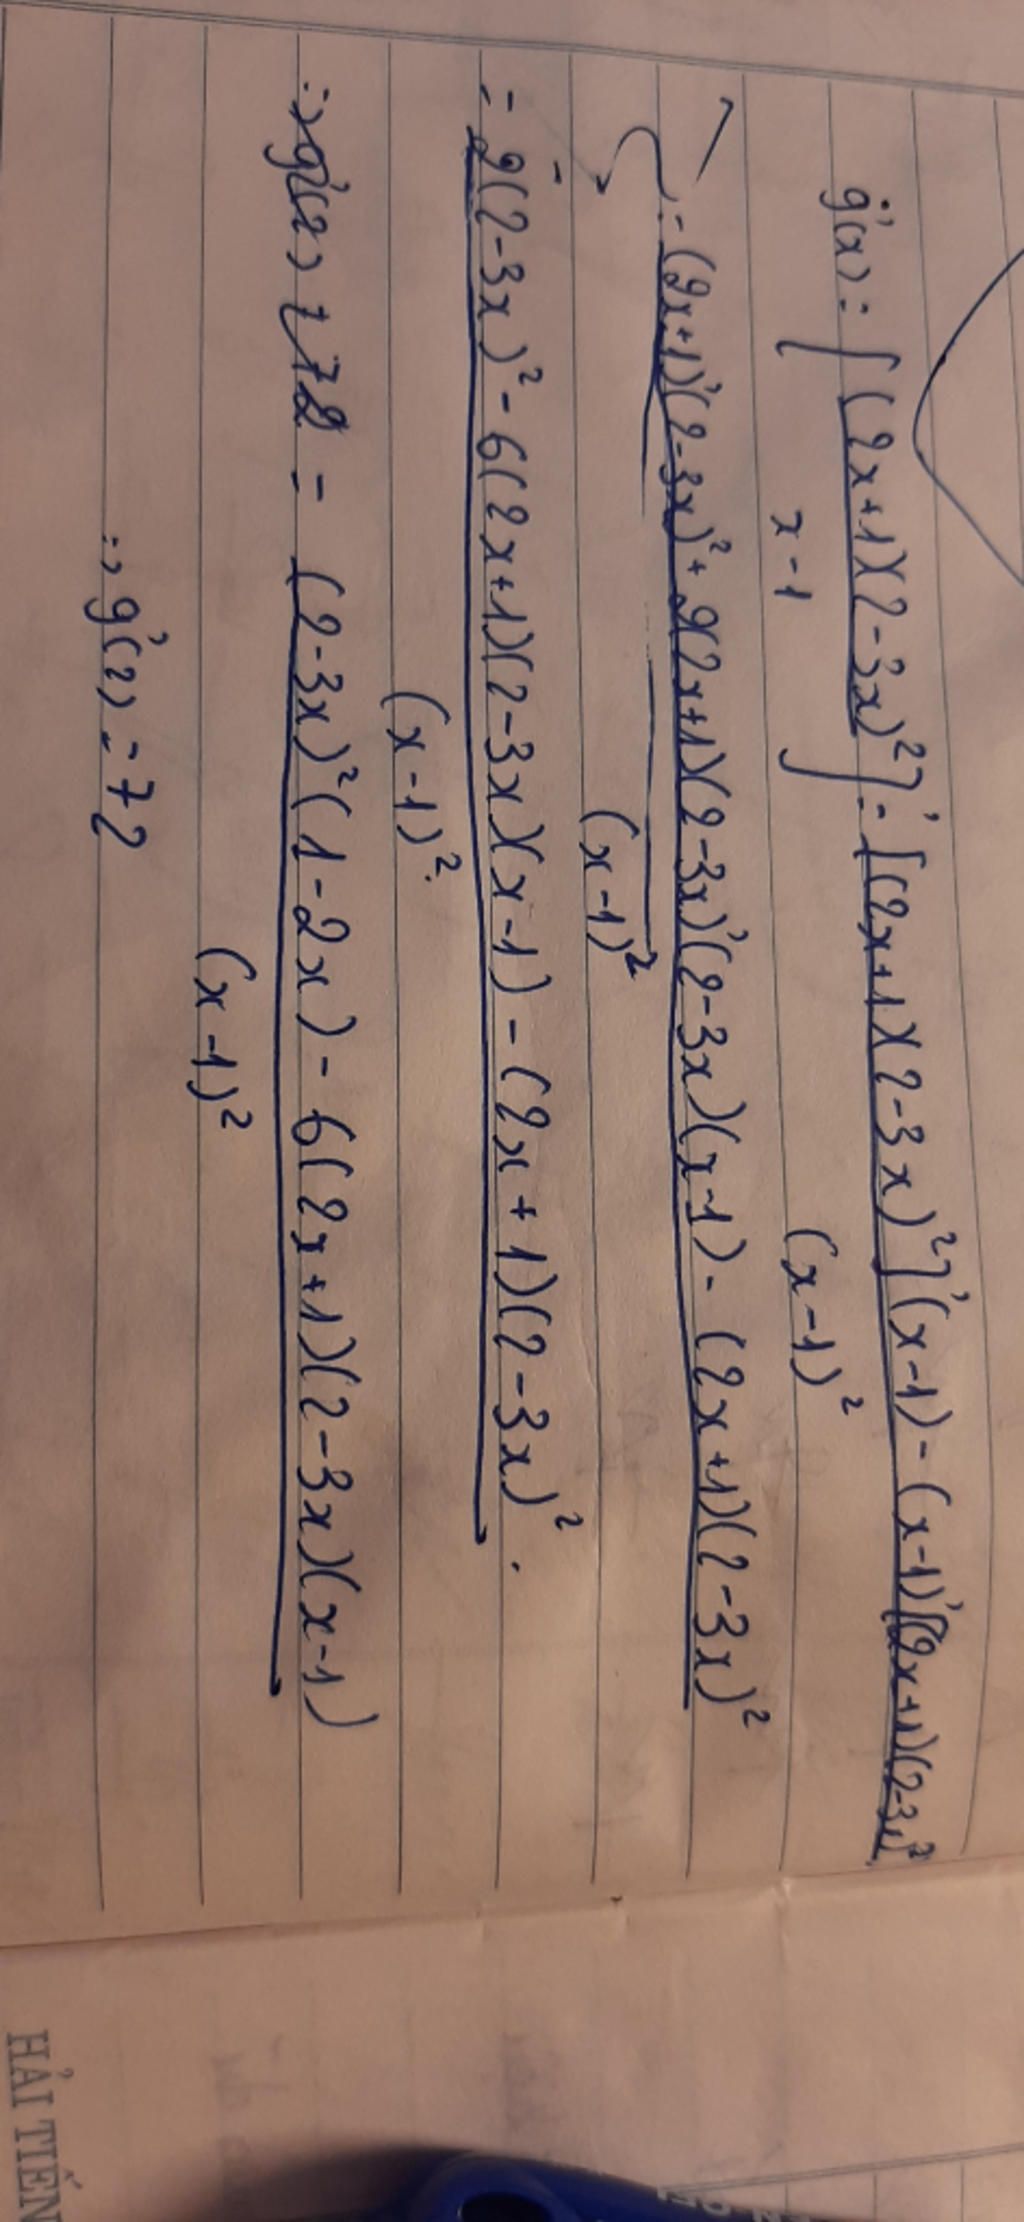 g'(x) = [(2x+1)(2-3x)²]' = [(2x+1)(2-3x)²]'(x-1) - (x-1)'[(2x+1)(2-3x)²
x-1 (x-1)²
= (2x+1)'(2-3x)² + 2(2x+1)(2-3x)'(2-3x)(x-1) - (2x+1)(2-3x)²
(x-1)²
= 2(2-3x)² - 6(2x+1)(2-3x)(x-1) - (2x+1)(2-3x)².
(x-1)².
= (2-3x)²(1-2x) - 6(2x+1)(2-3x)(x-1)
(x-1)²
=> g'(2) = 72
HẢI TIẾN